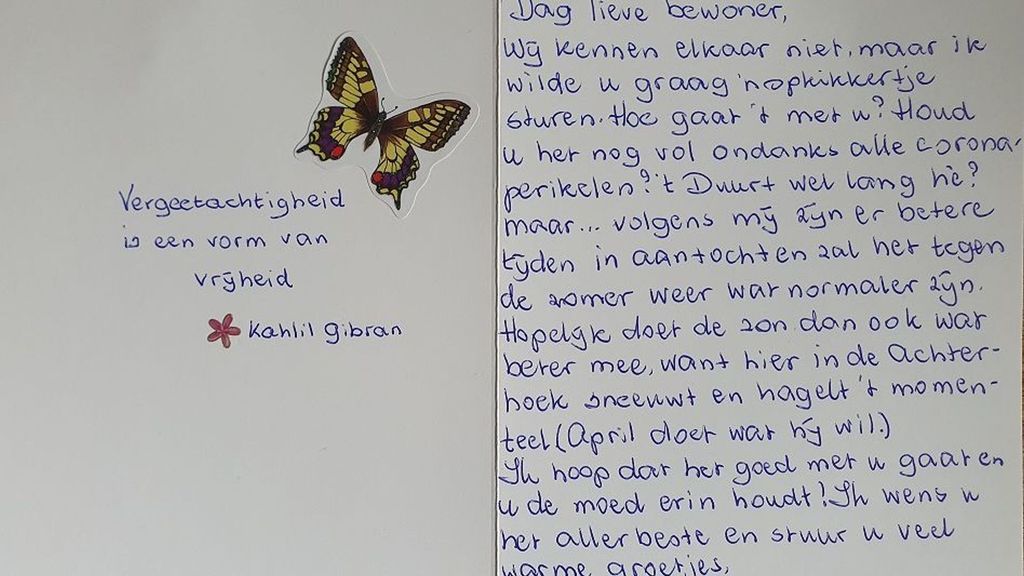 Vergeetachtigheid
is een vorm van
vrijheid
Kahlil Gibran
Dag lieve bewoner,
Wij kennen elkaar niet, maar ik
wilde u graag 'n opkikkertje
sturen. Hoe gaat 't met u? Houd
u het nog vol ondanks alle corona-
perikelen? 't Duurt wel lang hè?
maar... volgens mij zijn er betere
tijden in aantocht en zal het tegen
de zomer weer wat normaler zijn.
Hopelijk doet de zon dan ook wat
beter mee, want hier in de Achter-
hoek sneeuwt en hagelt 't momen-
teel (April doet wat hij wil.)
Ik hoop dat het goed met u gaat en
u de moed erin houdt! Ik wens u
het allerbeste en stuur u veel
warme groetjes,